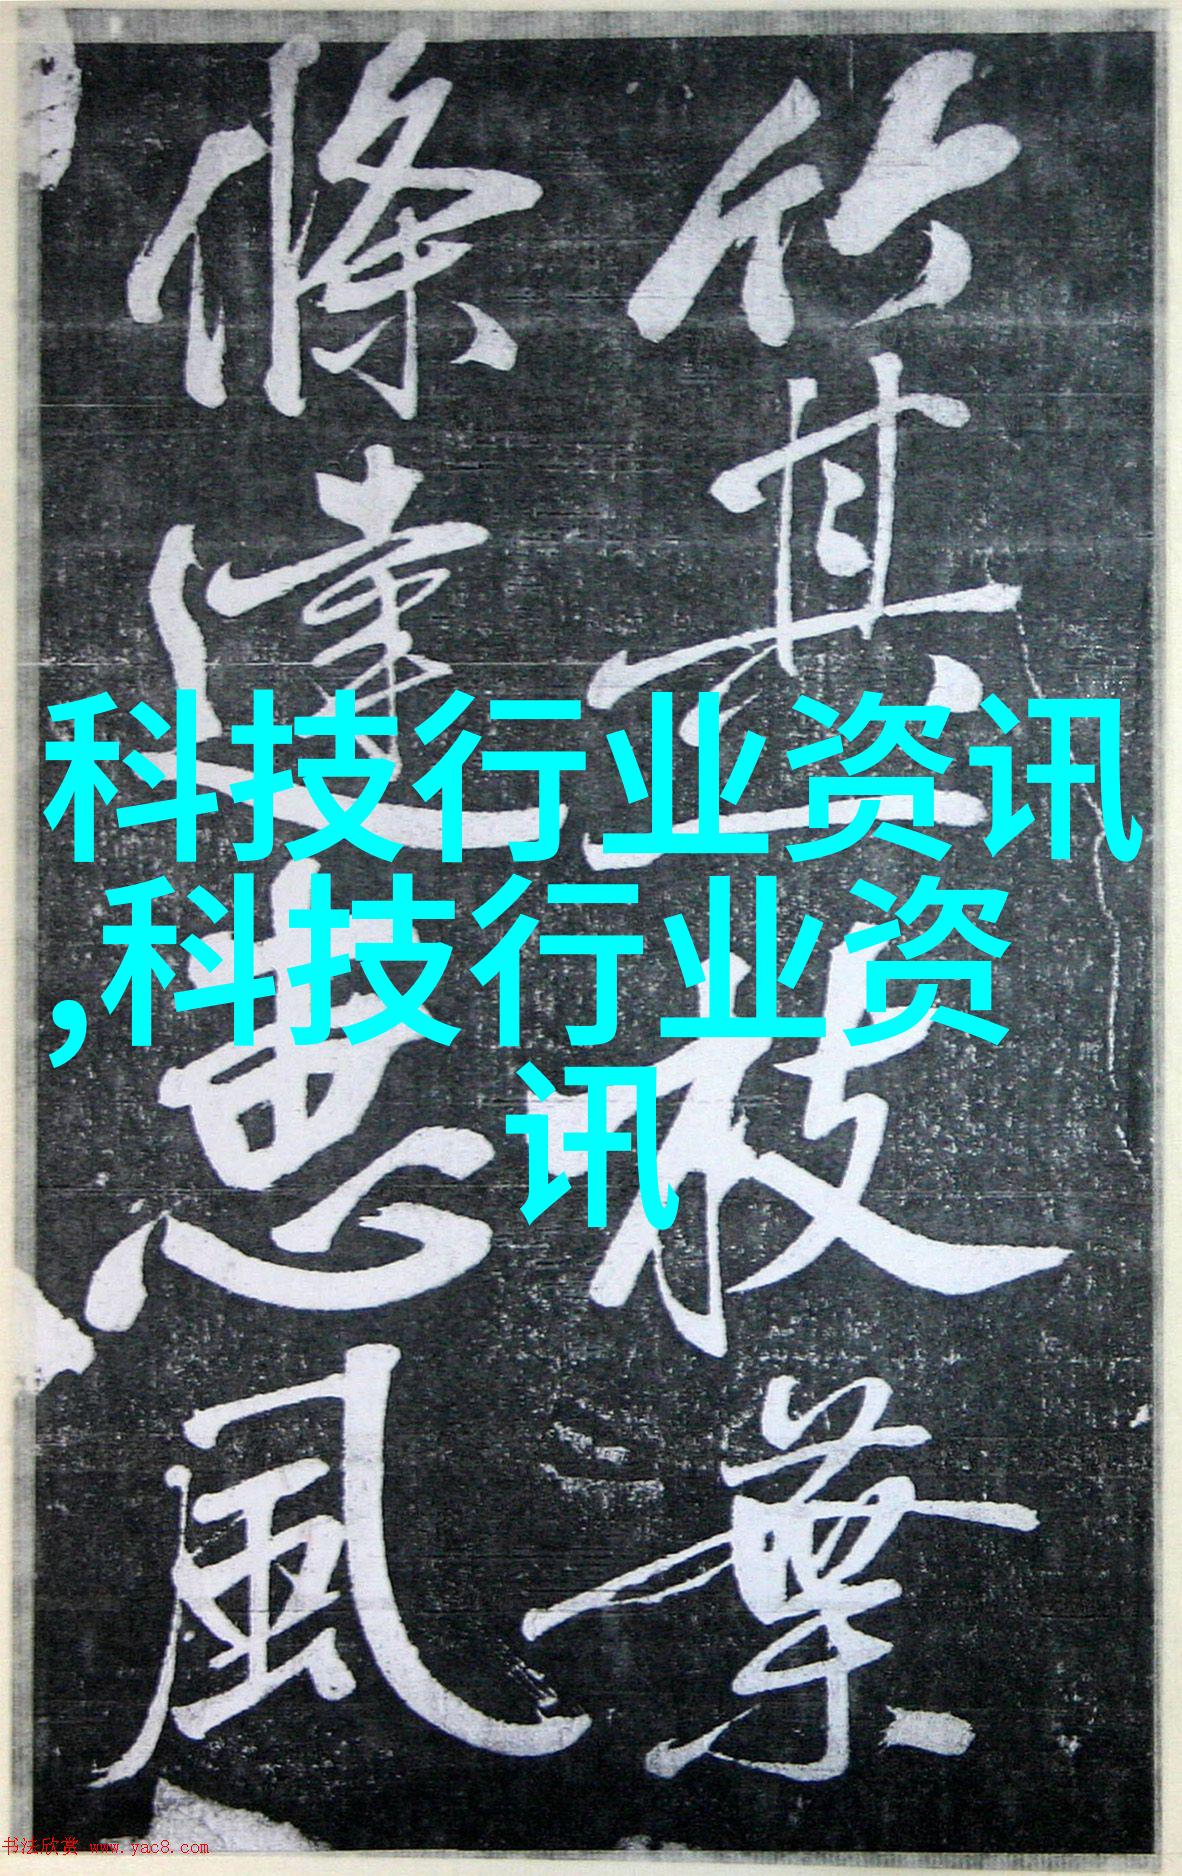 科技行业资讯
,科技行业资
讯
竹其枝葉
條達惠風
书法欣赏 www.yac8.com